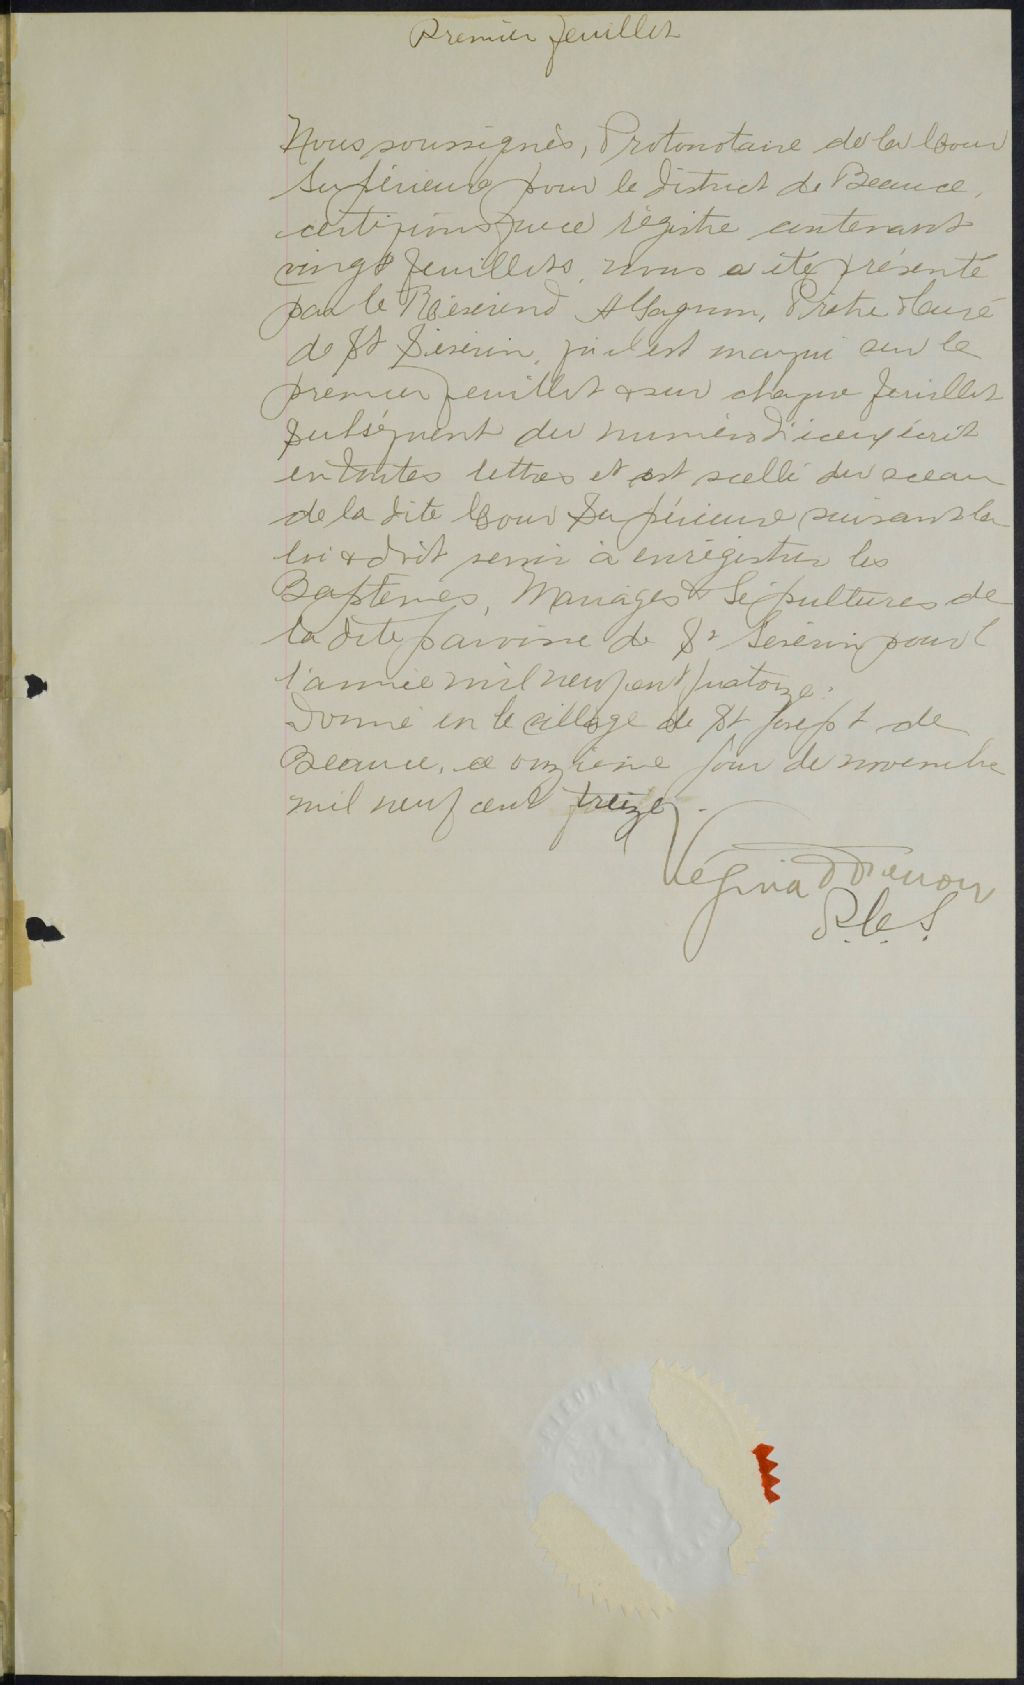 Premier feuillet
Nous soussignés, Protonotaire de la Cour
Supérieure pour le district de Beauce,
certifions que ce régistre contenant
vingt feuillets, nous a été présenté
par le Révérend A Gagnon, Prêtre Curé
de St Séverin, qu'il est marqué sur le
premier feuillet & sur chaque feuillet
subséquent du numéro d'iceux écrit
en toutes lettres et est scellé du sceau
de la dite Cour Supérieure suivant la
loi & doit servir à enrégistrer les
Baptêmes, Mariages & Sépultures de
la dite paroisse de St Séverin pour
l'année mil neuf cent quatorze.
Donné en le village de St Joseph de
Beauce, ce onzième jour de novembre
mil neuf cent treize.
P.C.S.